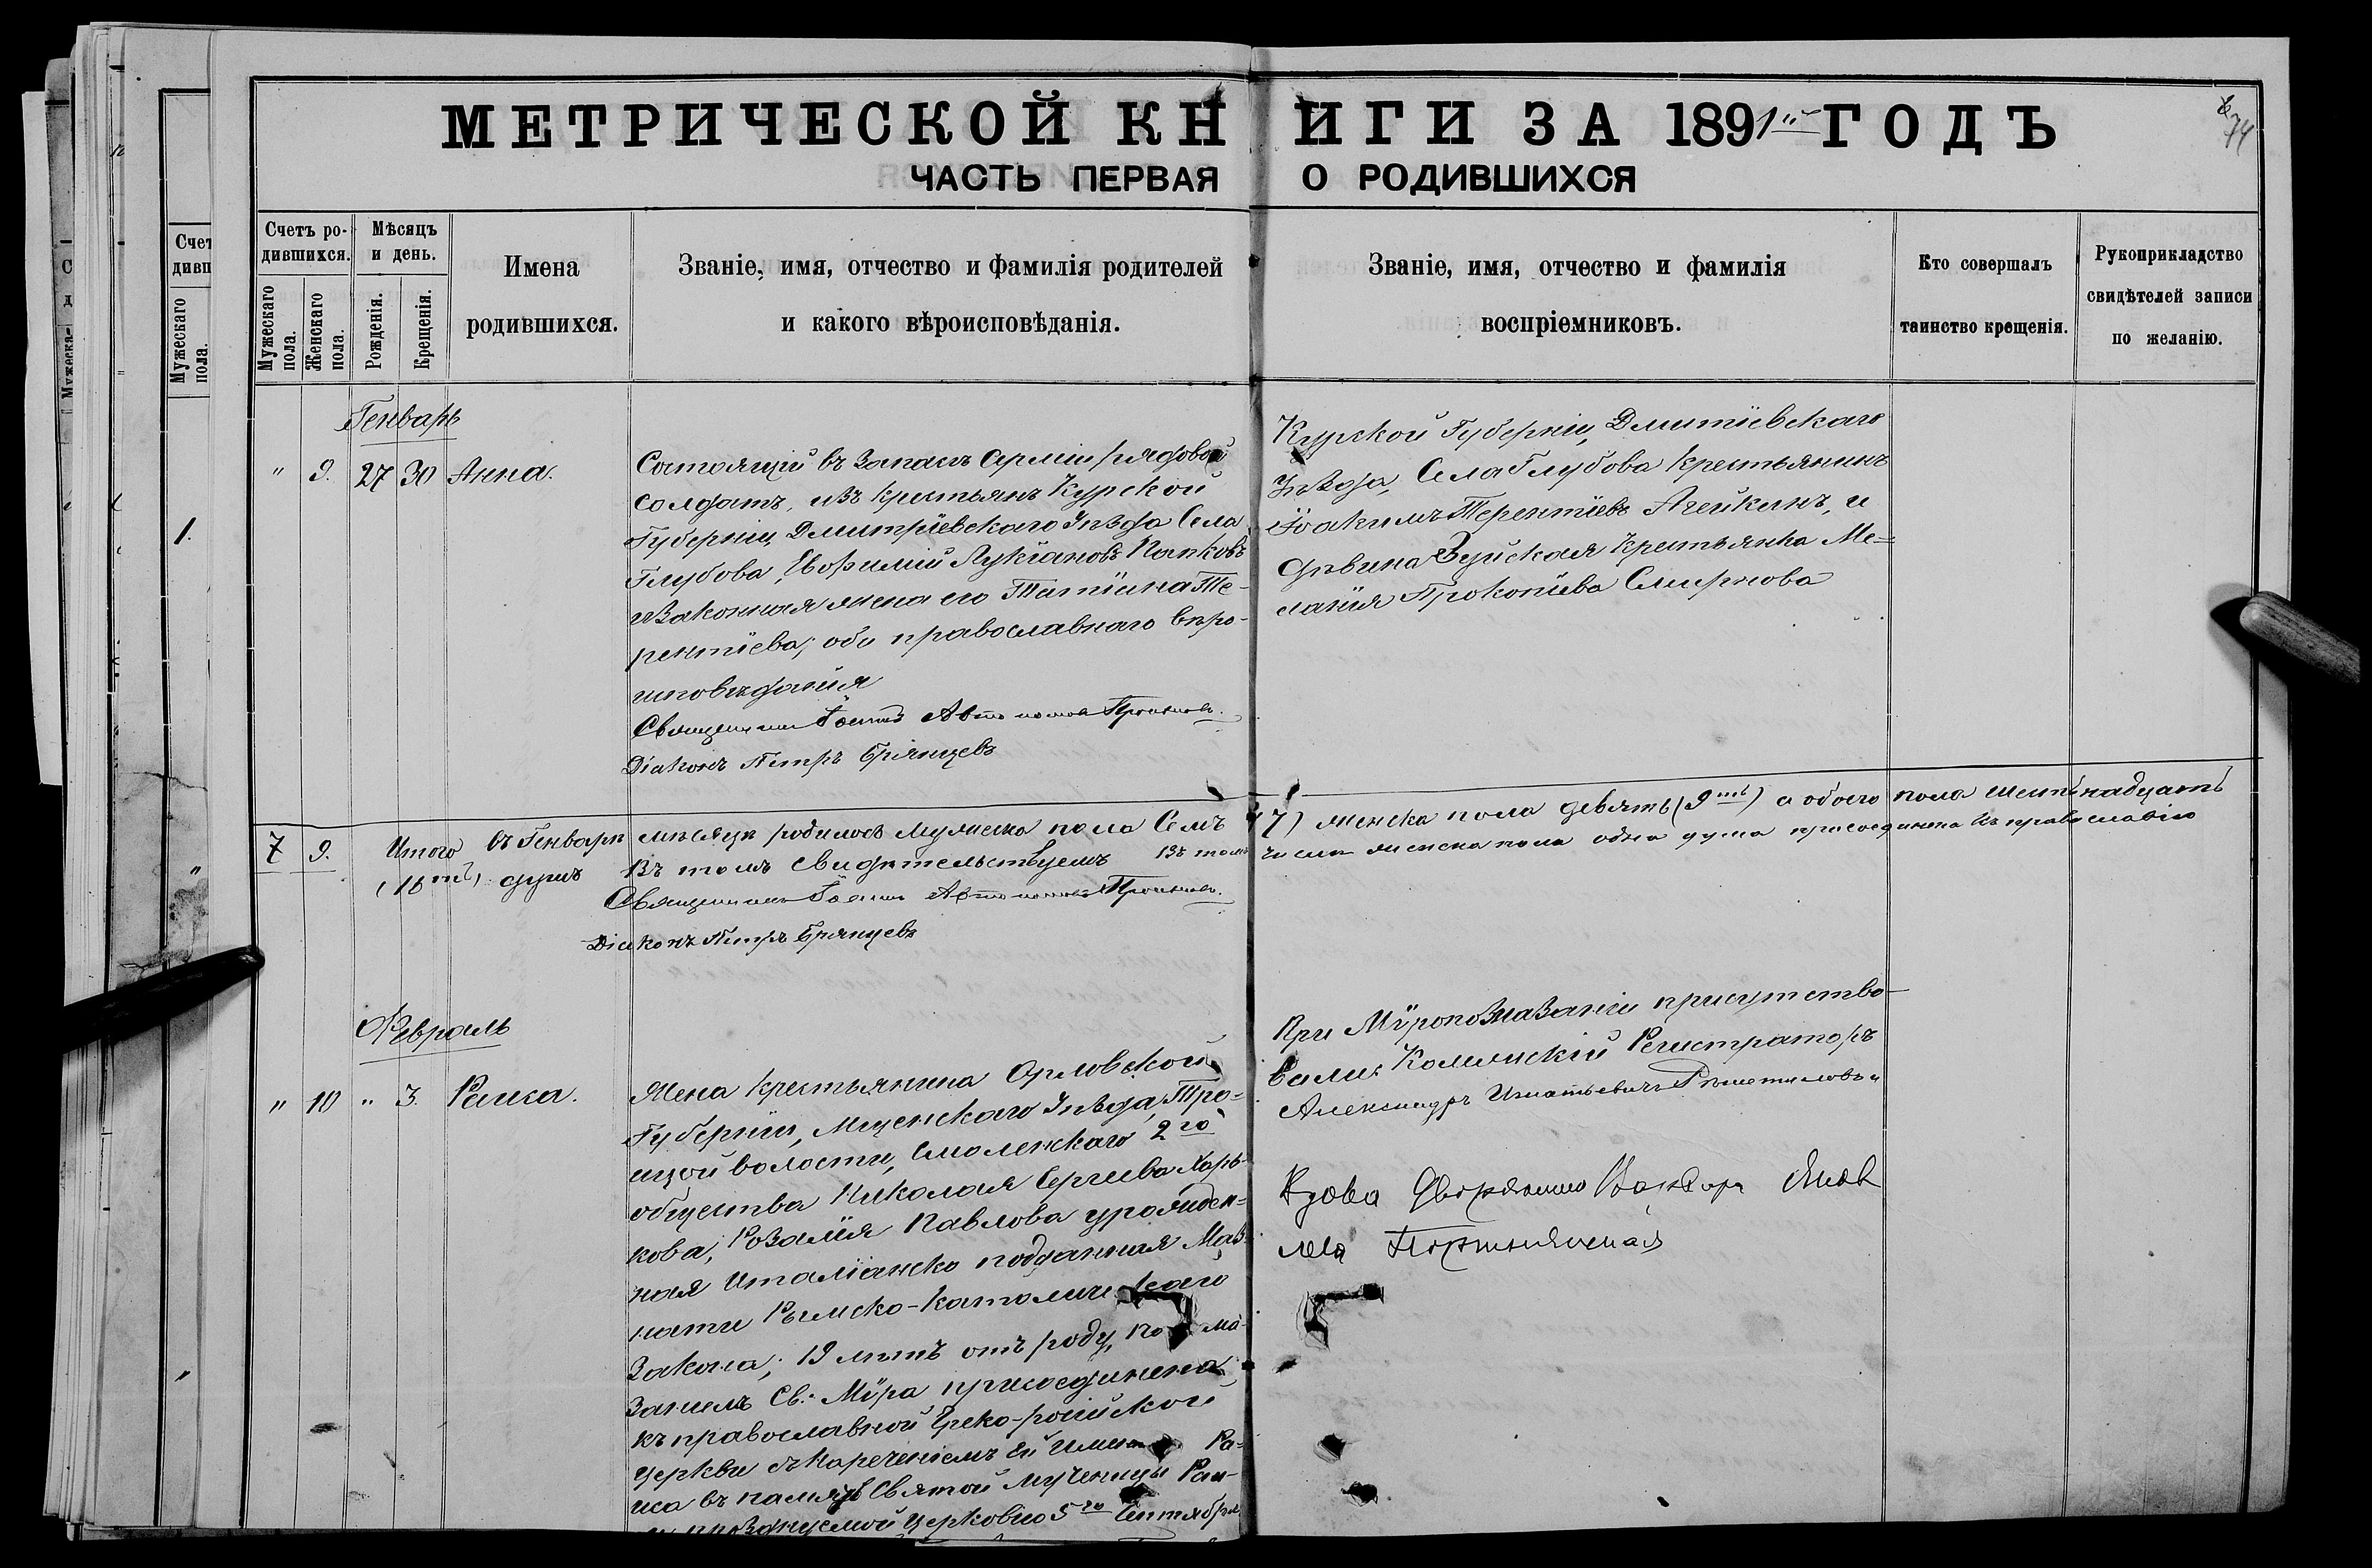 МЕТРИЧЕСКОЙ КНИГИ ЗА 1891 ГОДЪ
74
ЧАСТЬ ПЕРВАЯ О РОДИВШИХСЯ
Счетъ родившихся.
Мужескаго пола.
Женскаго пола.
Мѣсяцъ и день.
Рожденія.
Крещенія.
Имена
родившихся.
Званіе, имя, отчество и фамилія родителей
и какого вѣроисповѣданія.
Званіе, имя, отчество и фамилія
воспріемниковъ.
Кто совершалъ
таинство крещенія.
Рукоприкладство
свидѣтелей записи
по желанію.
Генварь
" 9. 27 30 Анна.
Состоящій въ запасѣ Арміи рядовой
солдатъ, изъ крестьянъ Курской
Губерніи, Дмитріевскаго Уѣзда Села
Глубова, Евфимій Лукіановъ Папковъ
и законная жена его Татіана Те-
рентіева; оба православнаго вѣро-
исповѣданія
Священникъ Іоаннъ
Діаконъ Петръ Брянцевъ
Курской Губерніи, Дмитіевскаго
Уѣзда, Села Глубова крестьянинъ
Іоакимъ Терентіевъ Агейкинъ, и
дѣвица Зуйская Крестьянка Ме-
ланія Прокопіева Смирнова
7 9. Итого въ Генварѣ мѣсяцѣ родилось мужеска пола Семь (7) женска пола девять (9ть) а обоего пола шестьнадцать
(16ть) душъ Въ томъ свидѣтельствуемъ Въ томъ числѣ женска пола одна душа присоединена къ православію
Священникъ Іоаннъ
Діаконъ Петръ Брянцевъ
Февраль
" 10 " 3. Раиса.
Жена крестьянина Орловской
Губерніи, Мценскаго Уѣзда, Тро-
ицкой волости, Смоленскаго 2го
общества Николая Сергиева Харь-
кова; Розалія Павлова урожден-
ная Италіанско подданная Маз-
нати Римско-католическаго
Закона; 19 лѣтъ отъ роду, пома-
заніемъ Св: Мѵра присоединена
къ православной Греко-россійской
церкви съ нареченіемъ ей имени Ра-
иса въ память Святой Мученицы Раи-
празднуемой церковію 5го Сентября
При Мѵропомазаніи присутство-
вали: Коллежскій Регистраторъ
Александръ Игнатьевичъ Рѣшетиловъ и
Вдова Дворянина
Мужескаго пола.
1.